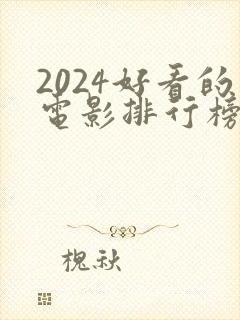 2024好看的
电影排行榜
槐秋